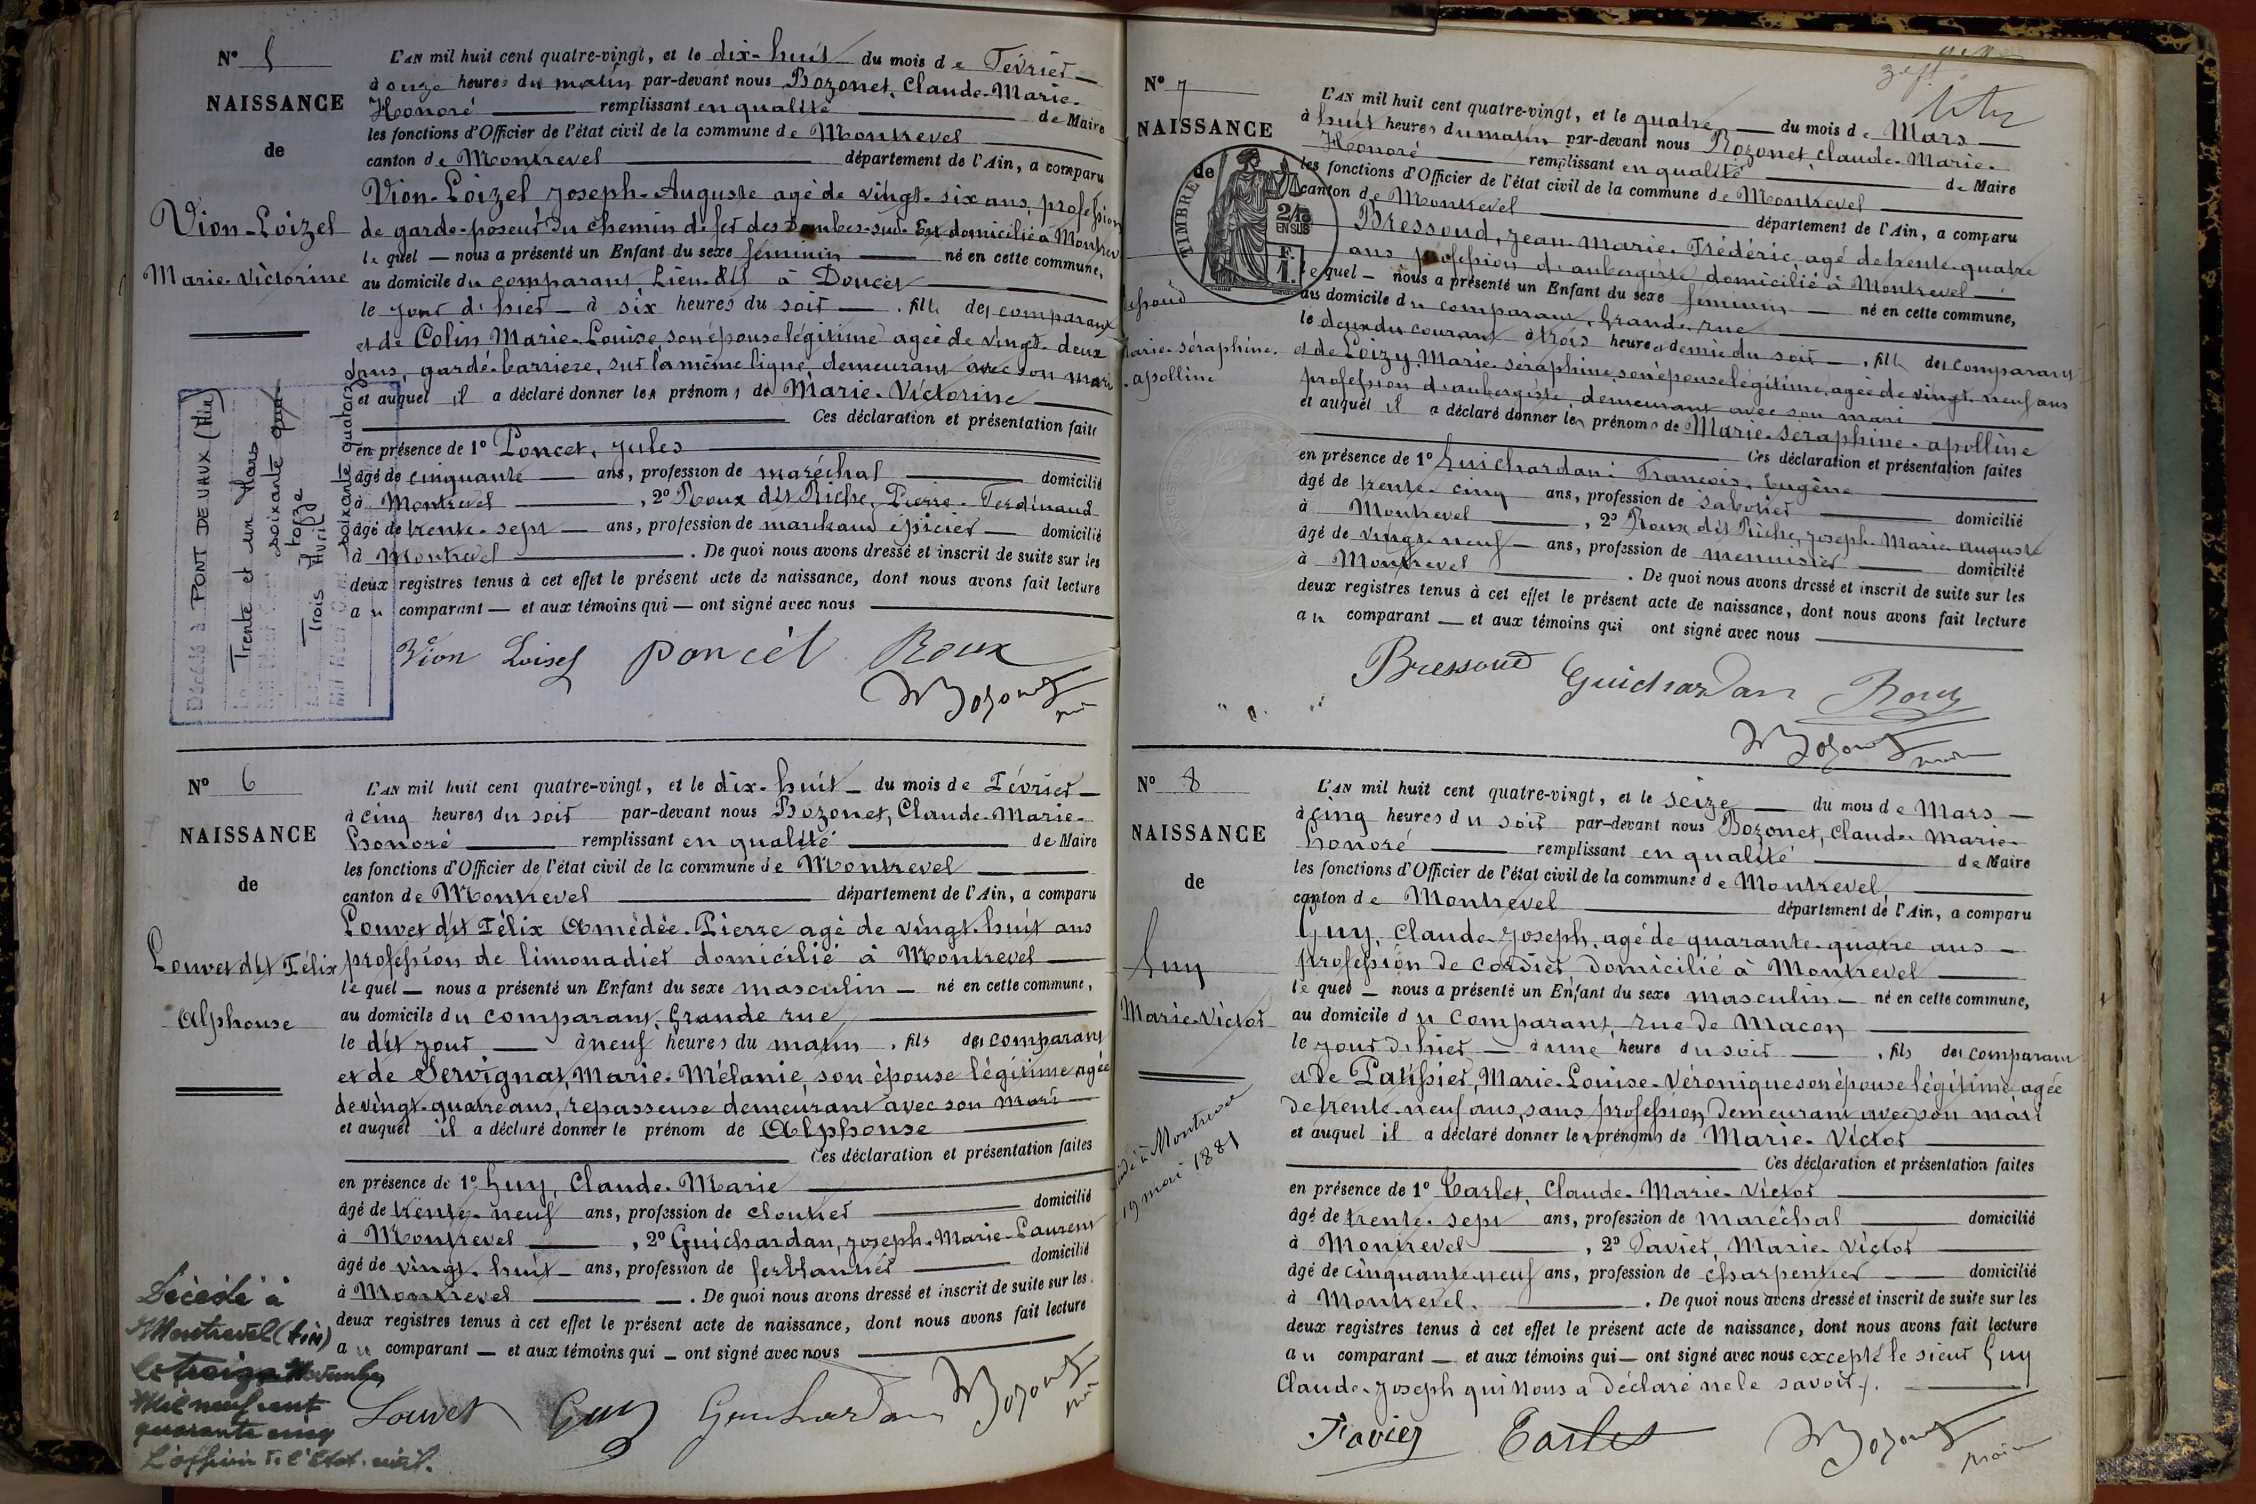 Nº 5
NAISSANCE
de
Vion-Loizel
Marie-Victorine
L'AN mil huit cent quatre-vingt, et le dix-huit du mois de Février
à onze heures du matin par-devant nous Bozonet, Claude-Marie-
Honoré remplissant en qualité de Maire
les fonctions d'Officier de l'état civil de la commune de Montrevel
canton de Montrevel département de l'Ain, a comparu
Vion-Loizel Joseph-Auguste agé de vingt-six ans, profession
de garde-poseur du chemin de fer des Dombes-Sud-Est domicilié à Montrevel
le quel — nous a présenté un Enfant du sexe féminin né en cette commune,
au domicile du comparant, Lieu-dit à Doucet
le jour d'hier à six heures du soir, fille des comparant
et de Colin Marie-Louise, son épouse légitime agée de vingt-deux
ans, garde-barrière, sur la même ligne, demeurant avec son mari
et auquel il a déclaré donner les prénoms de Marie-Victorine
Ces déclaration et présentation faites
en présence de 1º Poncet, Jules
âgé de cinquante ans, profession de maréchal domicilié
à Montrevel, 2º Roux dit Riche, Pierre-Ferdinand
âgé de trente-sept ans, profession de marchand épicier domicilié
à Montrevel. De quoi nous avons dressé et inscrit de suite sur les
deux registres tenus à cet effet le présent acte de naissance, dont nous avons fait lecture
au comparant — et aux témoins qui — ont signé avec nous
Vion Loisel Poncet Roux
Bozonet
Décédé à PONT DE VAUX (Ain)
Le Trente et un Mars
soixante qua-
torze
Le Trois Avril
soixante quatorze
Nº 6
NAISSANCE
de
Louvet dit Félix
Alphonse
L'AN mil huit cent quatre-vingt, et le dix-huit du mois de Février
à cinq heures du soir par-devant nous Bozonet, Claude-Marie-
Honoré remplissant en qualité de Maire
les fonctions d'Officier de l'état civil de la commune de Montrevel
canton de Montrevel département de l'Ain, a comparu
Louvet dit Félix Amédée-Pierre agé de vingt-huit ans
profession de limonadier domicilié à Montrevel
le quel — nous a présenté un Enfant du sexe masculin — né en cette commune,
au domicile du comparant, Grande rue
le dit jour à neuf heures du matin, fils des comparant
et de Servignat, Marie-Mélanie, son épouse légitime agée
de vingt-quatre ans, repasseuse demeurant avec son mari
et auquel il a déclaré donner le prénom de Alphonse
Ces déclaration et présentation faites
en présence de 1º Guy, Claude-Marie
âgé de trente-neuf ans, profession de cloutier domicilié
à Montrevel, 2º Guichardan, Joseph-Marie-Laurent
âgé de vingt-huit ans, profession de ferblantier domicilié
à Montrevel. De quoi nous avons dressé et inscrit de suite sur les
deux registres tenus à cet effet le présent acte de naissance, dont nous avons fait lecture
au comparant — et aux témoins qui — ont signé avec nous
Louvet Guy Guichardan Bozonet
Décédé à
Montrevel (Ain)
Le treize Novembre
Mil neuf cent
quarante cinq
L'officier de l'Etat-civil.
Nº 7
NAISSANCE
de
TIMBRE
2/10
EN SUS
F.
1.
Bressoud
Marie-séraphine-
apolline
L'AN mil huit cent quatre-vingt, et le quatre du mois de Mars
à huit heures du matin par-devant nous Bozonet Claude-Marie-
Honoré remplissant en qualité de Maire
les fonctions d'Officier de l'état civil de la commune de Montrevel
canton de Montrevel département de l'Ain, a comparu
Bressoud, Jean-Marie-Frédéric, agé de trente-quatre
ans profession d'aubergiste domicilié à Montrevel
le quel — nous a présenté un Enfant du sexe féminin né en cette commune,
au domicile du comparant, Grande-rue
le deux du courant à trois heures demie du soir, fille des comparant
et de Loizy, Marie-séraphine, son épouse légitime, agée de vingt-neuf ans
profession d'aubergiste, demeurant avec son mari
et auquel il a déclaré donner les prénoms de Marie-séraphine-apolline
Ces déclaration et présentation faites
en présence de 1º Guichardan François, Eugène
âgé de trente-cinq ans, profession de sabotier domicilié
à Montrevel, 2º Roux dit Riche, Joseph-Marie-Auguste
âgé de vingt-neuf ans, profession de menuisier domicilié
à Montrevel. De quoi nous avons dressé et inscrit de suite sur les
deux registres tenus à cet effet le présent acte de naissance, dont nous avons fait lecture
au comparant — et aux témoins qui ont signé avec nous
Bressoud Guichardan Roux
Bozonet
Nº 8
NAISSANCE
de
Guy
Marie-Victor
L'AN mil huit cent quatre-vingt, et le seize du mois de Mars
à cinq heures du soir par-devant nous Bozonet, Claude-Marie-
Honoré remplissant en qualité de Maire
les fonctions d'Officier de l'état civil de la commune de Montrevel
canton de Montrevel département de l'Ain, a comparu
Guy, Claude-Joseph, agé de quarante-quatre ans
profession de cordier, domicilié à Montrevel
le quel — nous a présenté un Enfant du sexe masculin — né en cette commune,
au domicile du comparant, rue de Macon
le jour d'hier à une heure du soir, fils des comparant
et de Patissier, Marie-Louise-Véronique son épouse légitime, agée
de trente-neuf ans, sans profession, demeurant avec son mari
et auquel il a déclaré donner les prénoms de Marie-Victor
Ces déclaration et présentation faites
en présence de 1º Carlet, Claude-Marie-Victor
âgé de trente-sept ans, profession de maréchal domicilié
à Montrevel, 2º Favier, Marie-Victor
âgé de cinquante-neuf ans, profession de charpentier domicilié
à Montrevel. De quoi nous avons dressé et inscrit de suite sur les
deux registres tenus à cet effet le présent acte de naissance, dont nous avons fait lecture
au comparant — et aux témoins qui — ont signé avec nous excepté le sieur Guy
Claude-Joseph qui nous a déclaré ne le savoir.
Favier Carlet Bozonet
maire
à Montrevel
19 mai 1881